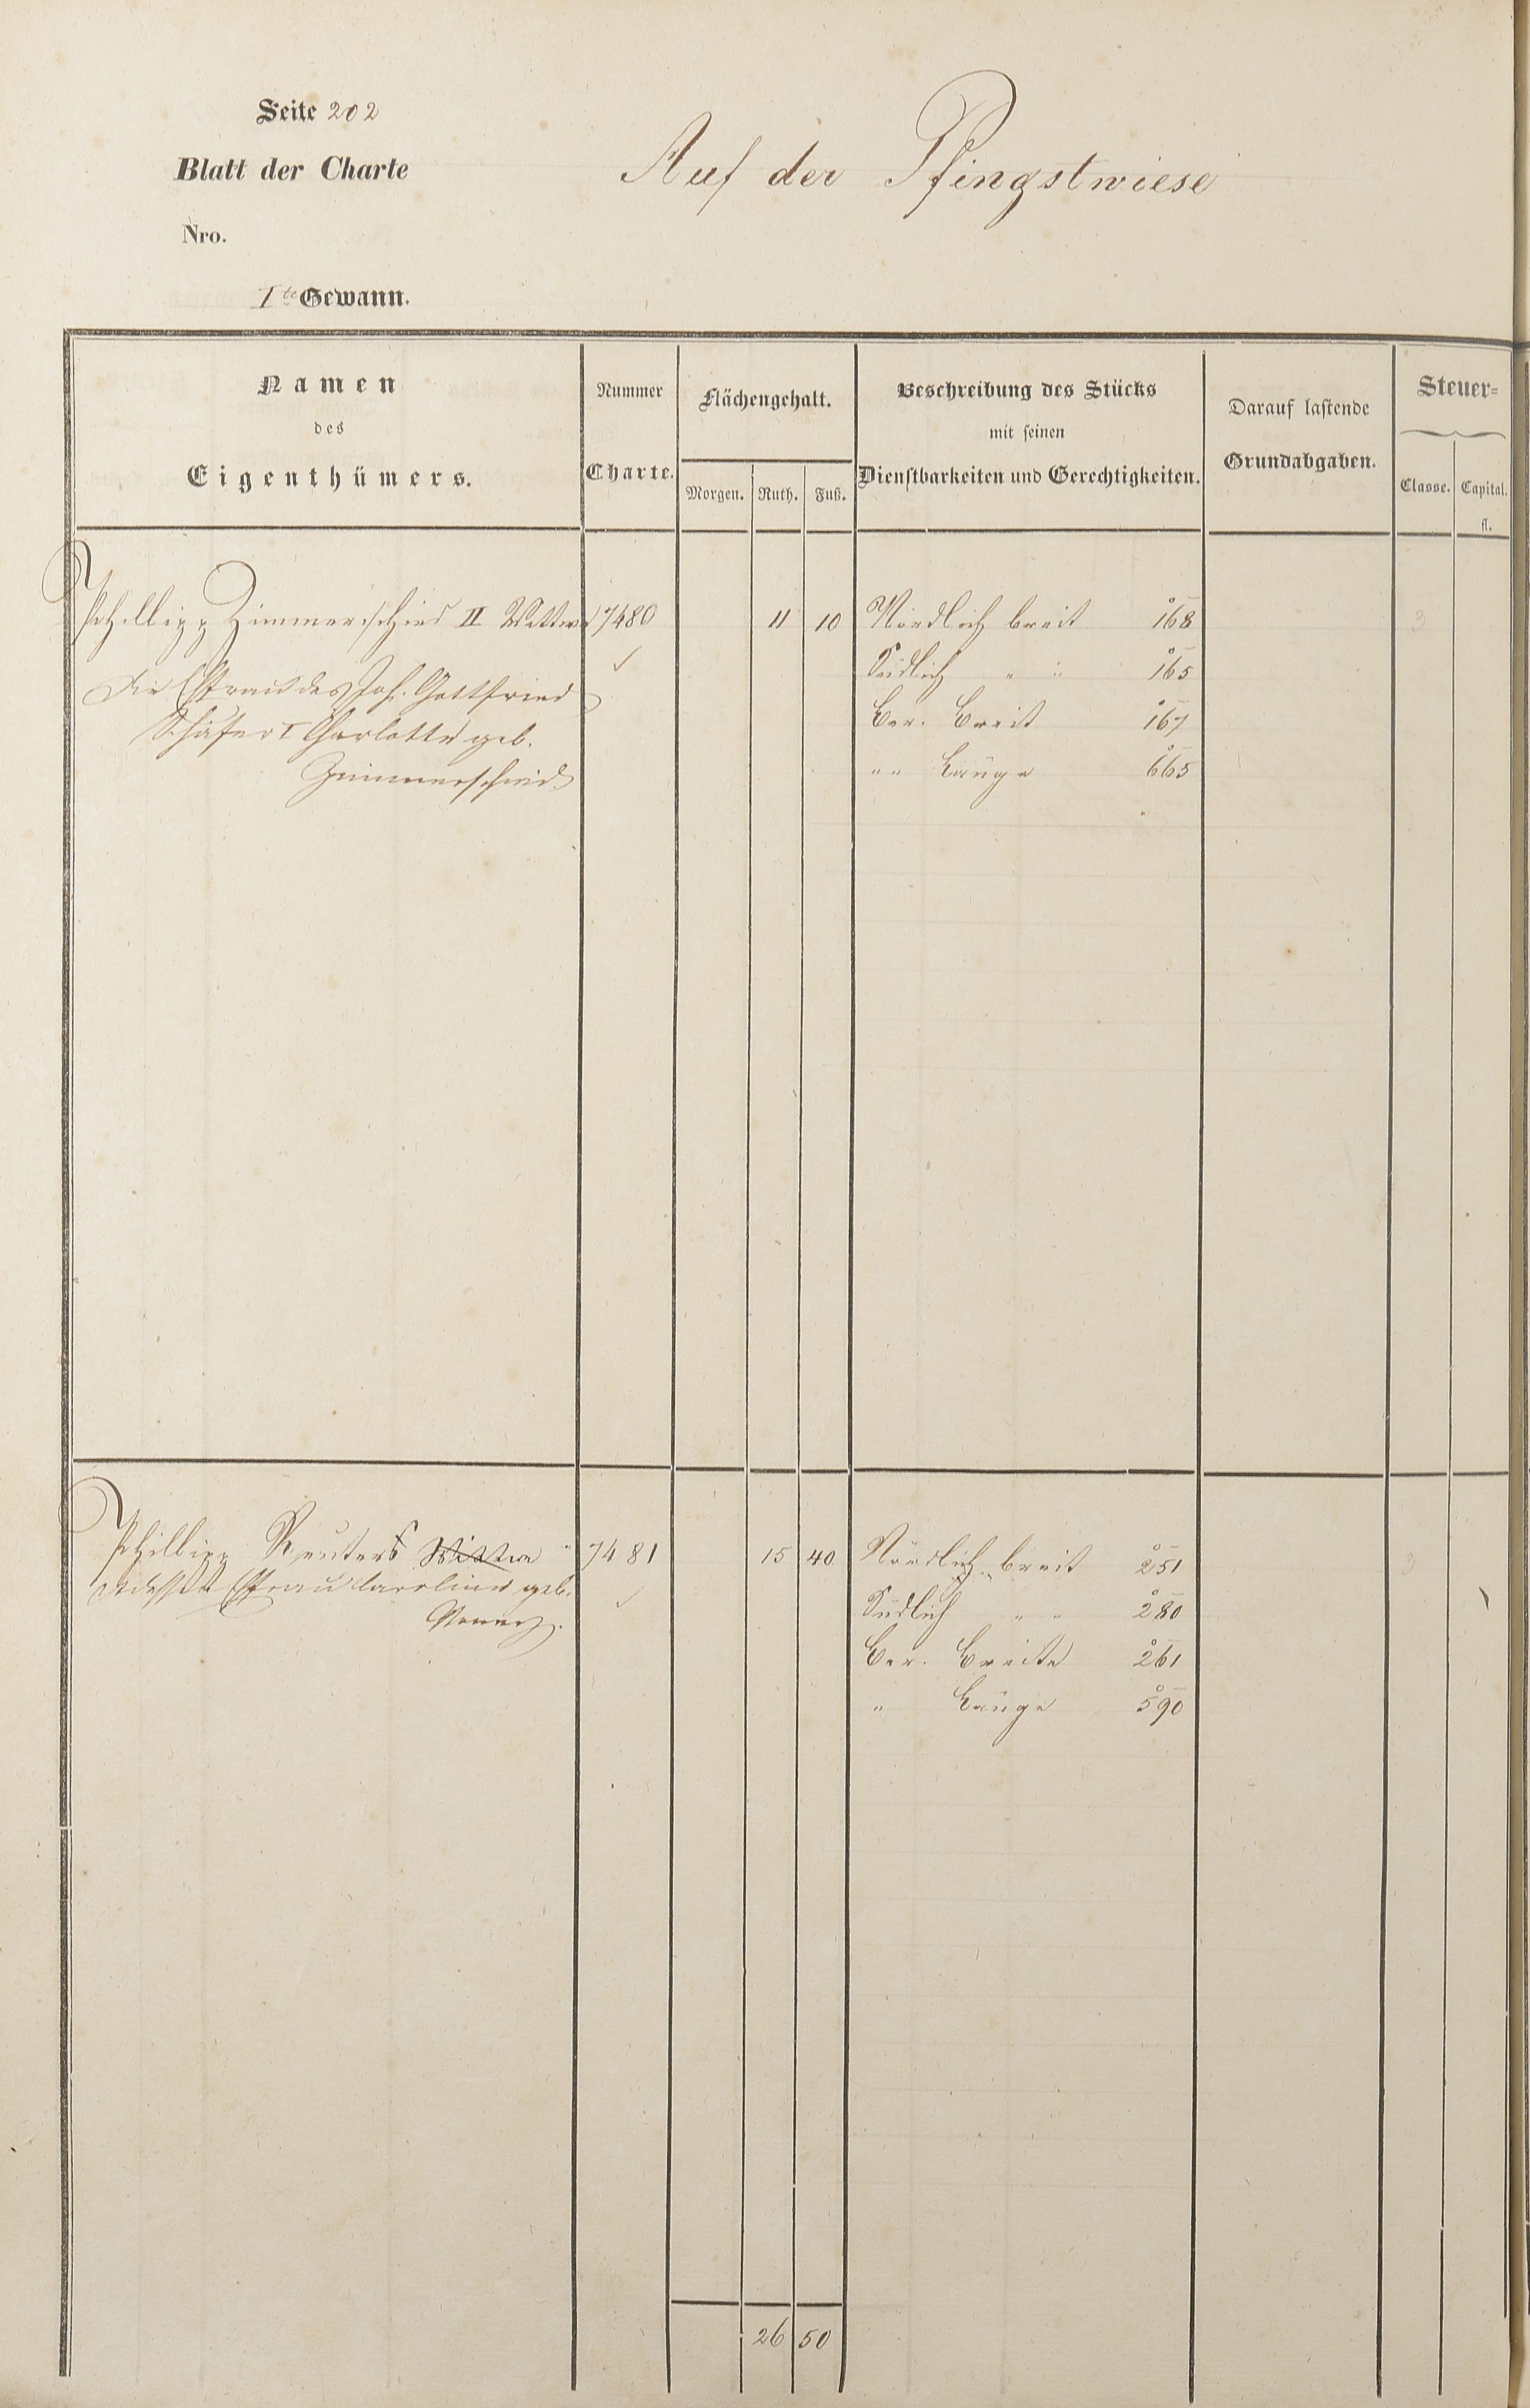 Seite 202
Blatt der Charte
Auf der Pfingstwiese
Nro.
I te Gewann.
Namen
des
Eigenthümers.
Nummer
Charte.
Flächengehalt.
Morgen. Ruth. Fuß.
Beschreibung des Stücks
mit seinen
Dienstbarkeiten und Gerechtigkeiten.
Darauf lastende
Grundabgaben.
Steuer-
Classe. Capital.
fl.
Philipp Zimmerschied II Wittwe 7480 11 10 Nördlich breit 168 3
Die Ehefrau des Joh. Gottfried Südlich " " 165
Schäfer I Charlotte geb. Ber. Breit 167
Zimmerschied " " Länge 665
Philipp Reuter Wittwe 7481 15 40 Nördlich breit 251 3
Ehefrau Caroline geb. Südlich " " 280
Ber. Breite 261
" Länge 590
26 50